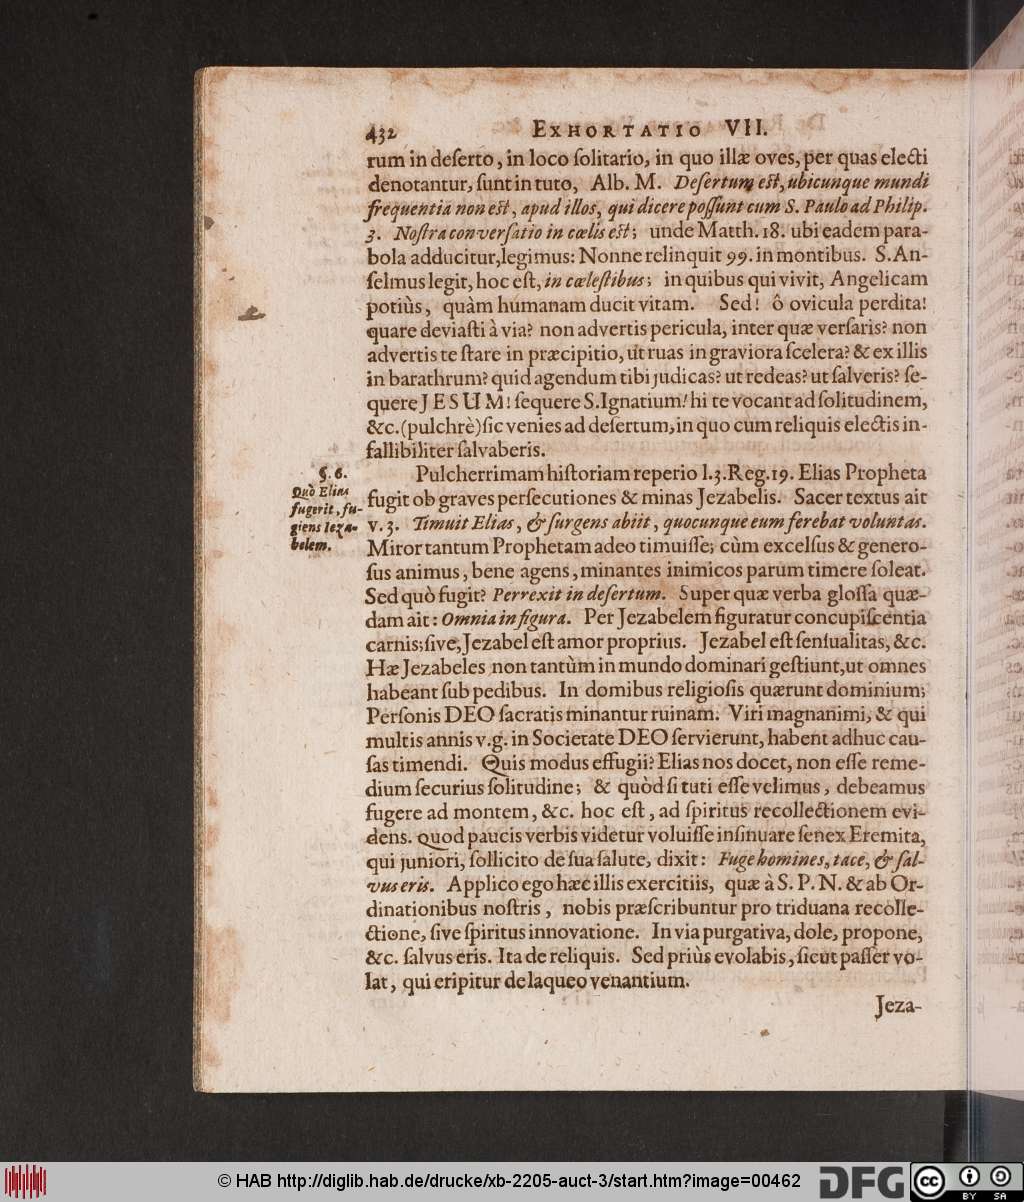 432 EXHORTATIO VII.
rum in deſerto, in loco ſolitario, in quo illæ oves, per quas electi
denotantur, ſunt in tuto, Alb. M. Deſertum eſt, ubicunque mundi
frequentia non eſt, apud illos, qui dicere poſſunt cum S. Paulo ad Philip.
3. Noſtra converſatio in cœlis eſt; unde Matth. 18. ubi eadem para-
bola adducitur, legimus: Nonne relinquit 99. in montibus. S. An-
ſelmus legit, hoc eſt, in cæleſtibus; in quibus qui vivit, Angelicam
potiùs, quàm humanam ducit vitam. Sed! ô ovicula perdita!
quare deviaſti à via? non advertis pericula, inter quæ verſaris? non
advertis te ſtare in præcipitio, ut ruas in graviora ſcelera? & ex illis
in barathrum? quid agendum tibi judicas? ut redeas? ut ſalveris? ſe-
quere JESUM! ſequere S. Ignatium! hi te vocant ad ſolitudinem,
&c. (pulchrè) ſic venies ad deſertum, in quo cum reliquis electis in-
fallibiliter ſalvaberis.
§. 6.
Quò Elias
fugerit, fu-
giens Ieza-
belem.
Pulcherrimam hiſtoriam reperio l. 3. Reg. 19. Elias Propheta
fugit ob graves perſecutiones & minas Jezabelis. Sacer textus ait
v. 3. Timuit Elias, & ſurgens abiit, quocunque eum ferebat voluntas.
Miror tantum Prophetam adeo timuiſſe; cùm excelſus & genero-
ſus animus, bene agens, minantes inimicos parum timere ſoleat.
Sed quò fugit? Perrexit in deſertum. Super quæ verba gloſſa quæ-
dam ait: Omnia in figura. Per Jezabelem figuratur concupiſcentia
carnis; ſive, Jezabel eſt amor proprius. Jezabel eſt ſenſualitas, &c.
Hæ Jezabeles non tantùm in mundo dominari geſtiunt, ut omnes
habeant ſub pedibus. In domibus religioſis quærunt dominium;
Perſonis DEO ſacratis minantur ruinam. Viri magnanimi, & qui
multis annis v. g. in Societate DEO ſervierunt, habent adhuc cau-
ſas timendi. Quis modus effugii? Elias nos docet, non eſſe reme-
dium ſecurius ſolitudine; & quòd ſi tuti eſſe velimus, debeamus
fugere ad montem, &c. hoc eſt, ad ſpiritus recollectionem evi-
dens. quod paucis verbis videtur voluiſſe inſinuare ſenex Eremita,
qui juniori, ſollicito de ſua ſalute, dixit: Fuge homines, tace, & ſal-
vus eris. Applico ego hæc illis exercitiis, quæ à S. P. N. & ab Or-
dinationibus noſtris, nobis præſcribuntur pro triduana recolle-
ctione, ſive ſpiritus innovatione. In via purgativa, dole, propone,
&c. ſalvus eris. Ita de reliquis. Sed priùs evolabis, ſicut paſſer vo-
lat, qui eripitur de laqueo venantium.
Jeza-
© HAB http://diglib.hab.de/drucke/xb-2205-auct-3/start.htm?image=00462
DFG
cc BY SA